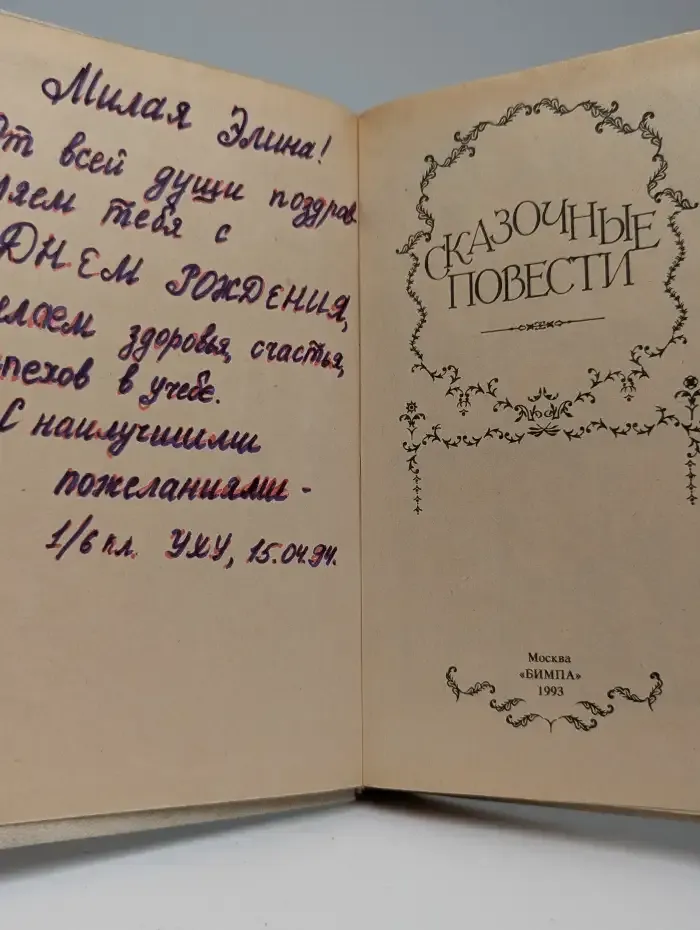 Милая Элина!
От всей души поздрав
ляем тебя с
ДНЕМ РОЖДЕНИЯ,
елаем здоровья, счастья,
пехов в учебе.
С наилучшими
пожеланиями -
1/6 кл. УХУ, 15.04.94.
СКАЗОЧНЫЕ
ПОВЕСТИ
Москва
«БИМПА»
1993